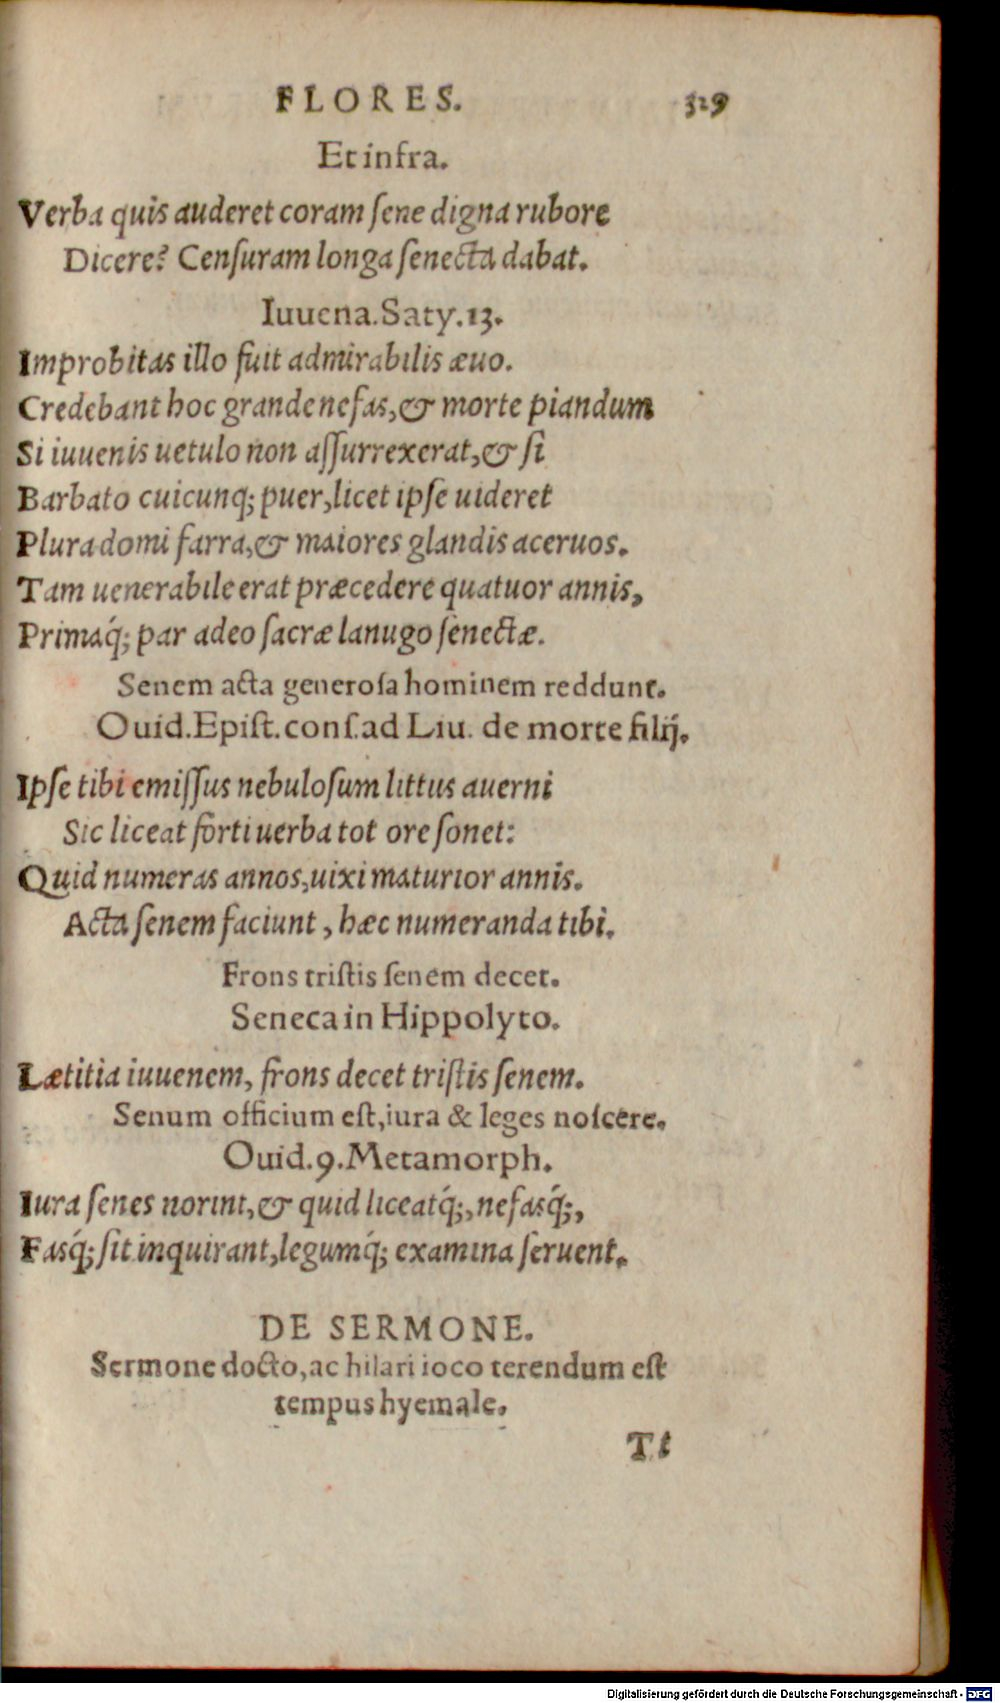 FLORES. 329
Et infra.
Verba quis auderet coram ſene digna rubore
Dicere? Cenſuram longa ſenecta dabat.
Iuuena.Saty.13.
Improbitas illo fuit admirabilis æuo.
Credebant hoc grande nefas,& morte piandum
Si iuuenis uetulo non aſſurrexerat,& ſi
Barbato cuicunq; puer,licet ipſe uideret
Plura domi farra,& maiores glandis aceruos.
Tam uenerabile erat præcedere quatuor annis,
Primaq́; par adeo ſacræ lanugo ſenectæ.
Senem acta generoſa hominem reddunt.
Ouid.Epiſt.conſ.ad Liu. de morte filij.
Ipſe tibi emiſſus nebuloſum littus auerni
Sic liceat forti uerba tot ore ſonet:
Quid numeras annos,uixi maturior annis.
Acta ſenem faciunt , hæc numeranda tibi.
Frons triſtis ſenem decet.
Seneca in Hippolyto.
Lætitia iuuenem, frons decet triſtis ſenem.
Senum officium eſt,iura & leges noſcere.
Ouid.9.Metamorph.
Iura ſenes norint,& quid liceatq́;,nefasq́;,
Fasq́; ſit inquirant,legumq́; examina ſeruent.
DE SERMONE.
Sermone docto,ac hilari ioco terendum eſt
tempus hyemale.
Tt
Digitalisierung gefördert durch die Deutsche Forschungsgemeinschaft - DFG